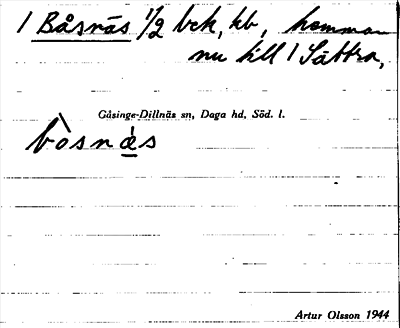 1 Båsnäs 1/2 bck, kb, hemman
nu till 1 Sättra,
Gåsinge-Dillnäs sn, Daga hd, Söd. l.
bòsnä̀s
Artur Olsson 1944